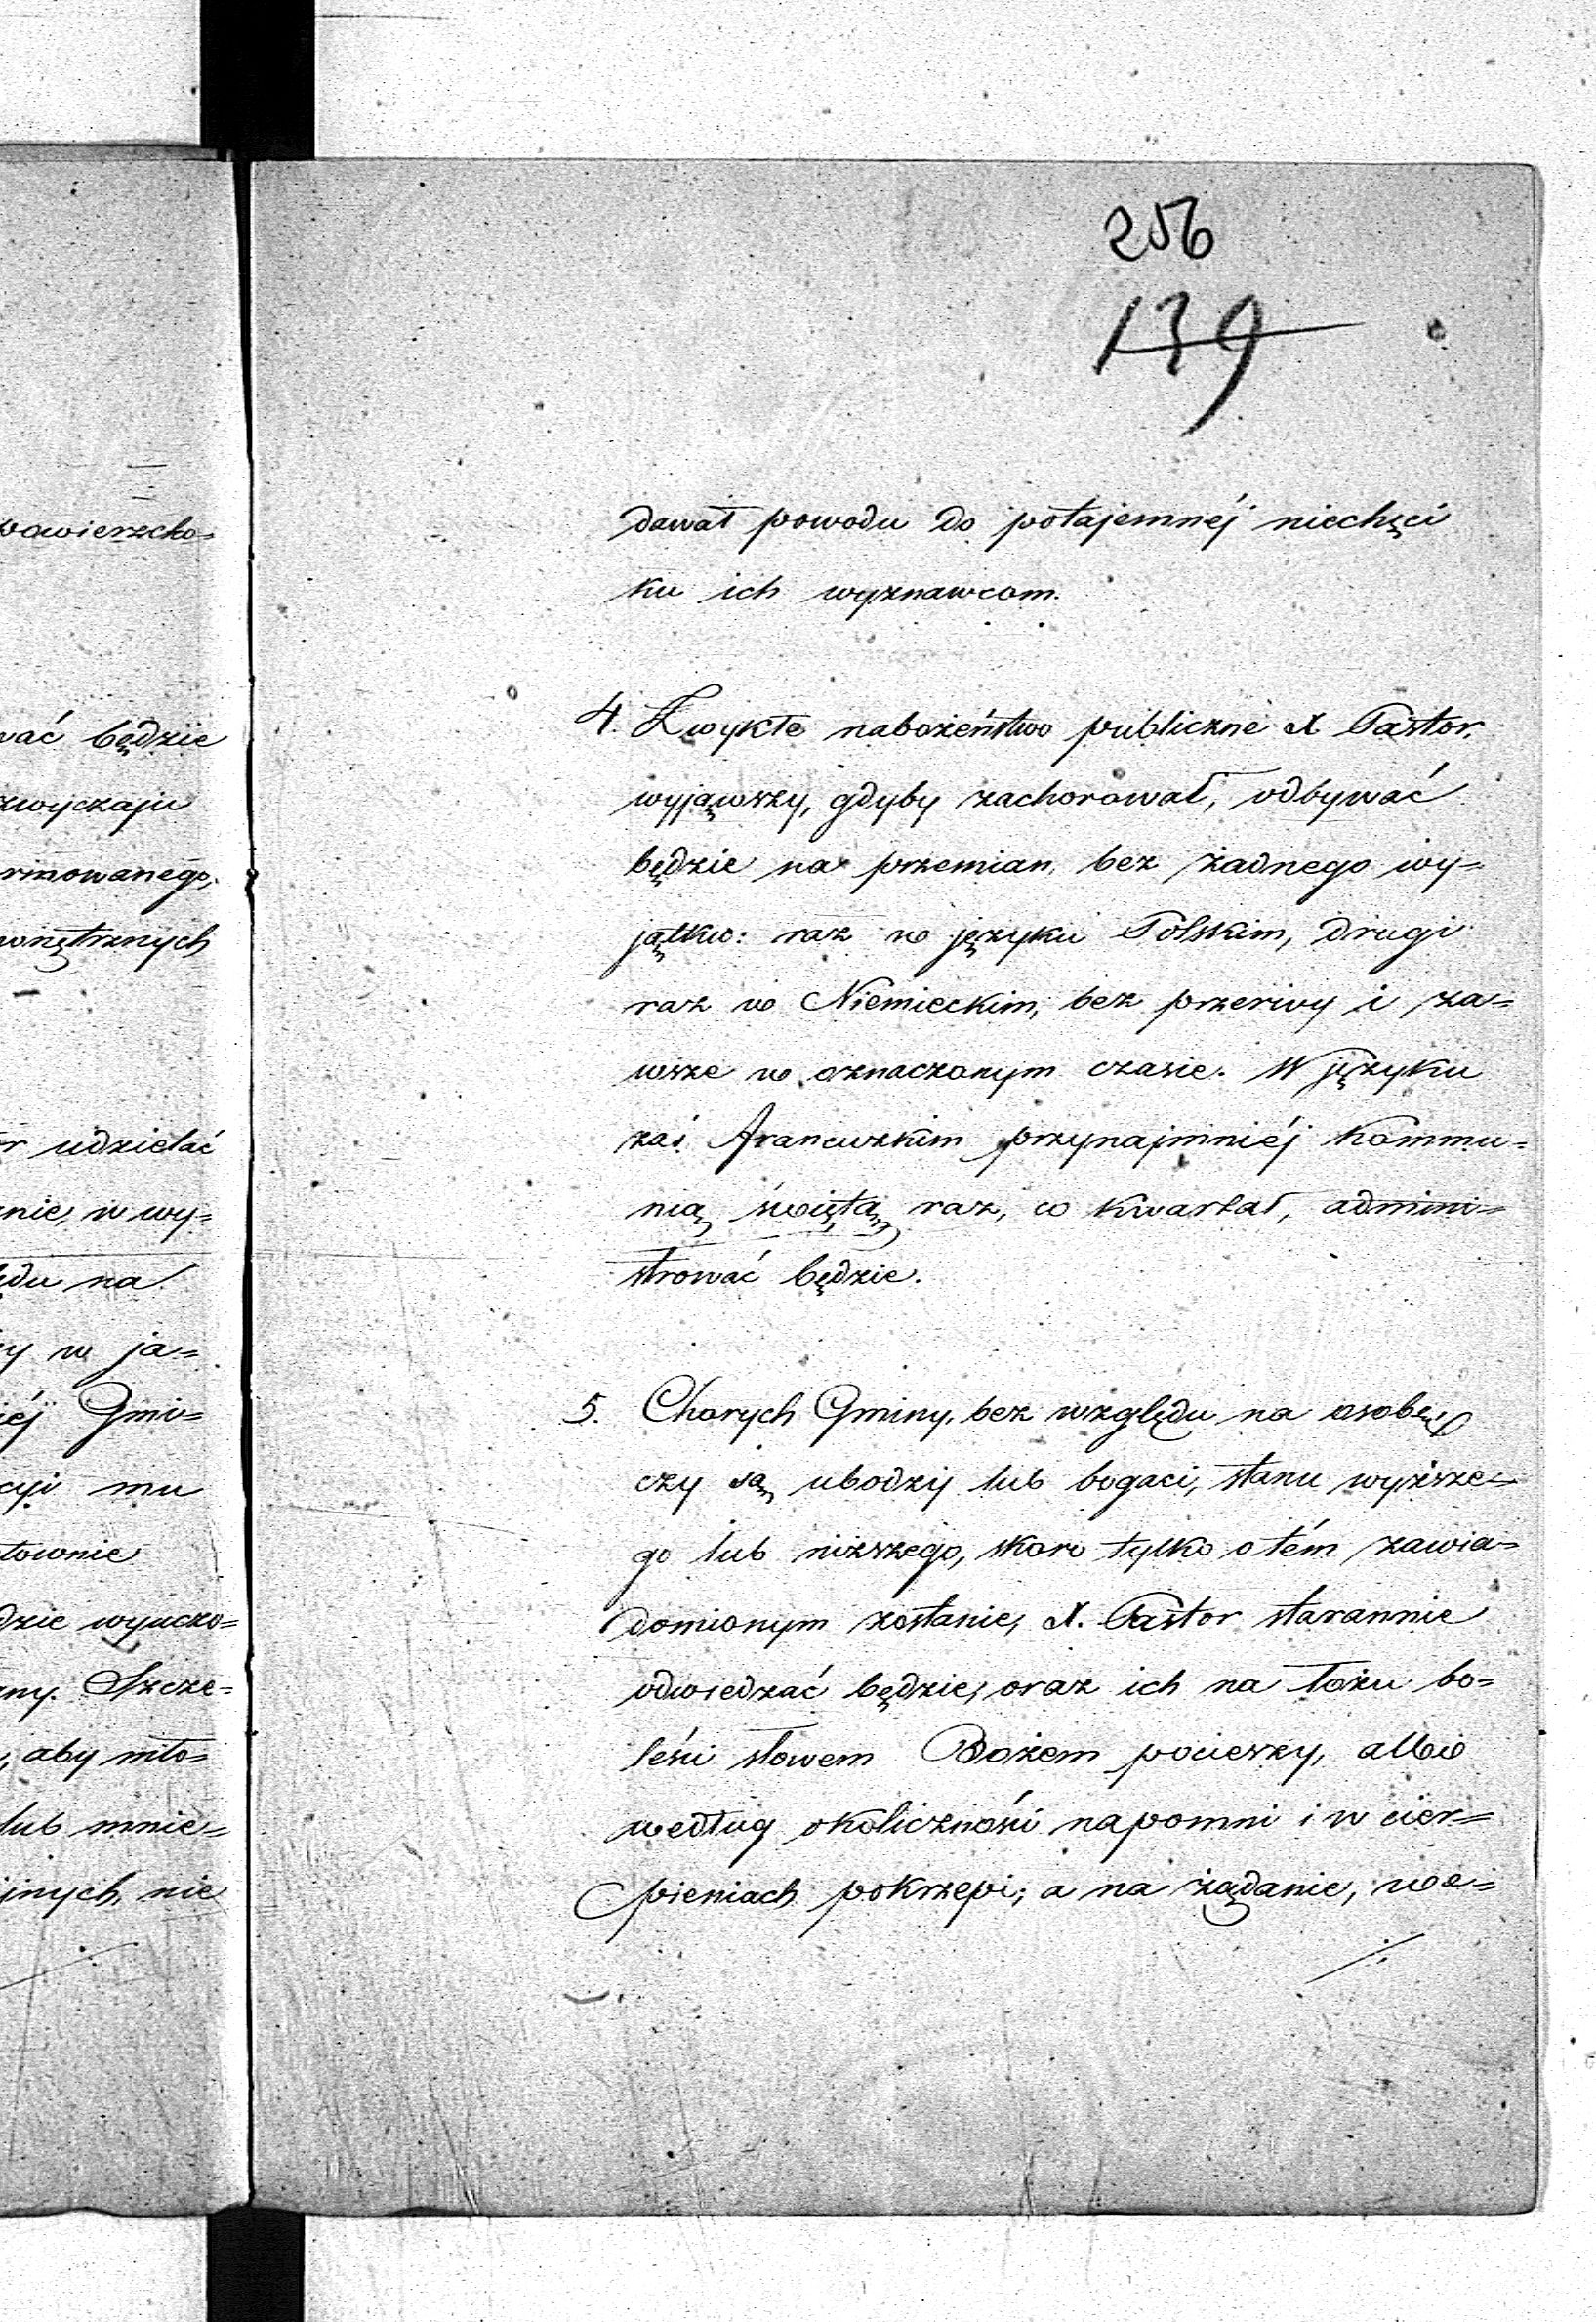 powierzcho=
wać będzie
zwyczaju
rmowanego,
wnętrznych
r udzielać
nie, w wy=
ędu na
y w ja=
iéj Gmi=
cyi mu
townie
dzie wyuczo=
ny. Szcze=
, aby mło=
lub mnie=
jnych nie
256
139
dawał powodu do potajemnéj niechęci
ku ich wyznawcom.
4. Zwykłe nabożeństwo publiczne X Pastor,
wyjąwszy, gdyby zachorował, odbywać
będzie na przemian, bez żadnego wy=
jątku: raz w języku Polskim, drugi
raz w Niemieckim, bez przerwy i za=
wsze w oznaczonym czasie. W języku
zaś Francuzkim przynajmniéj Kommu=
nią świętą raz, co kwartał, admini=
strować będzie.
5. Chorych Gminy, bez względu na osobę,
czy są ubodzy lub bogaci, stanu wyższe=
go lub niższego, skoro tylko o tém zawia=
domionym zostanie, X. Pastor starannie
odwiedzać będzie, oraz ich na łożu bo=
leści słowem Bożem pocieszy, albo
według okoliczności napomni i w cier=
pieniach pokrzepi; a na żądanie, we=